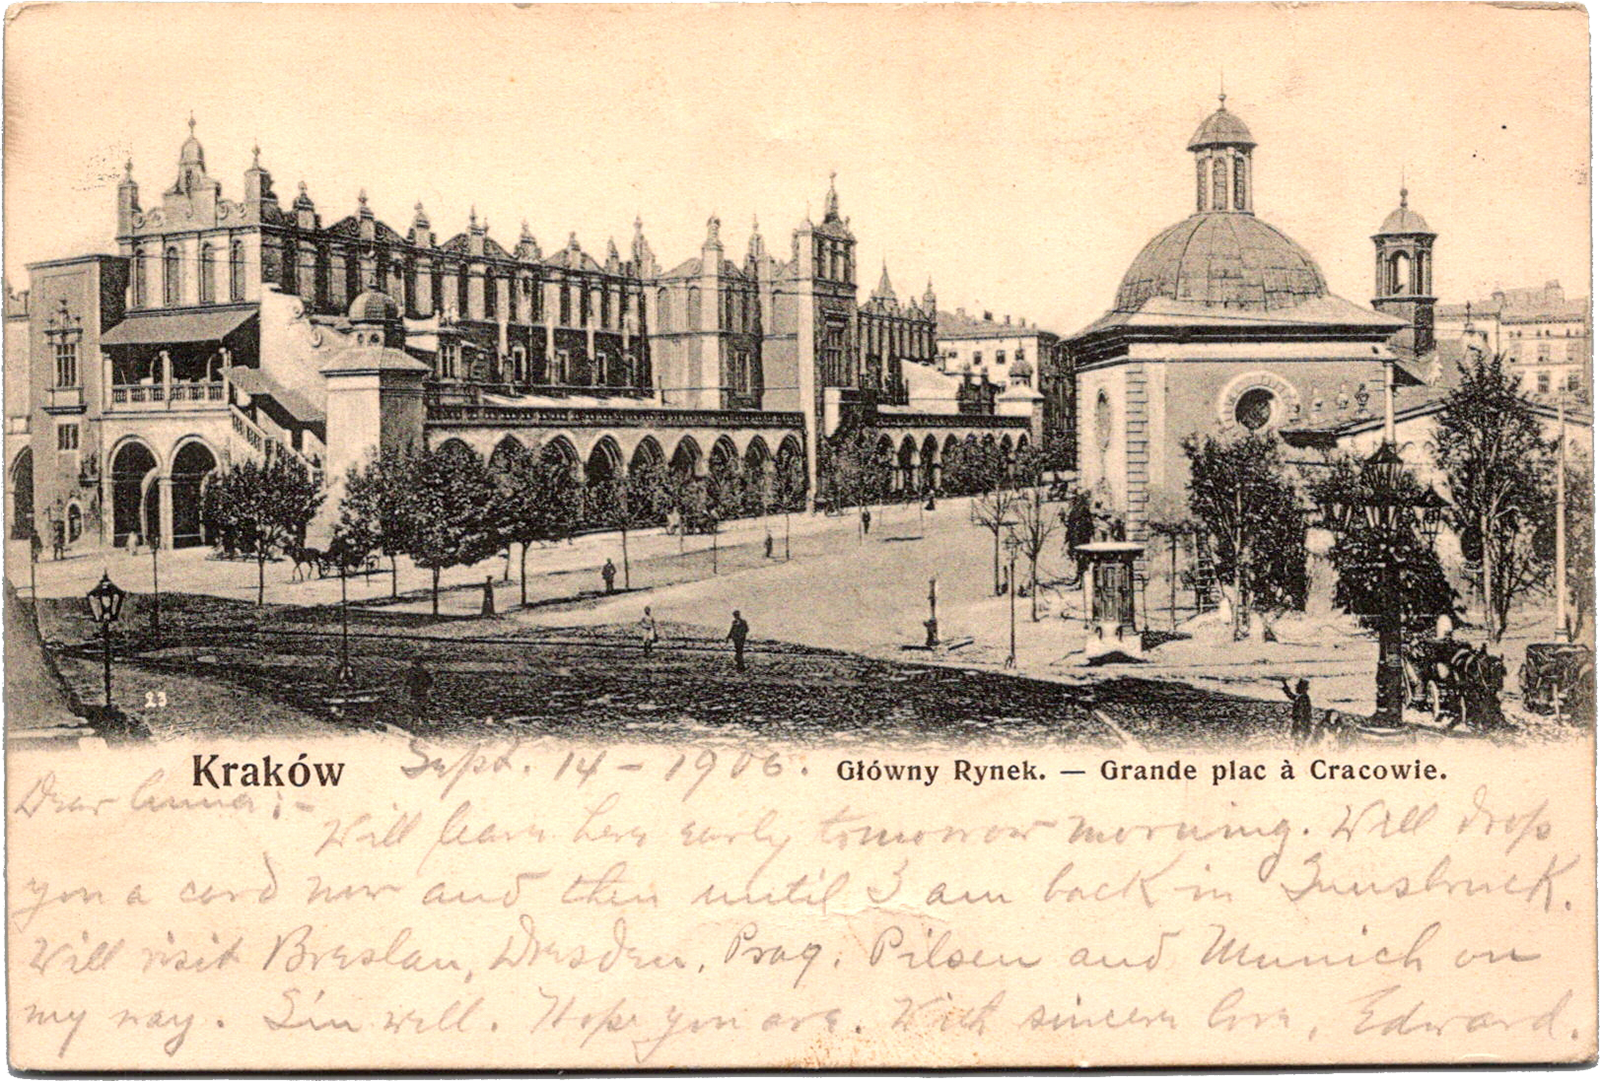 23
Kraków Sept. 14 - 1906. Główny Rynek. — Grande plac à Cracowie.
Dear Anna:-
Will leave here early tomorrow morning. Will drop
you a card now and then until I am back in Innsbruck.
Will visit Breslau, Dresden, Prag, Pilsen and Munich on
my way. I'm well. Hope you are. With sincere love, Edward.